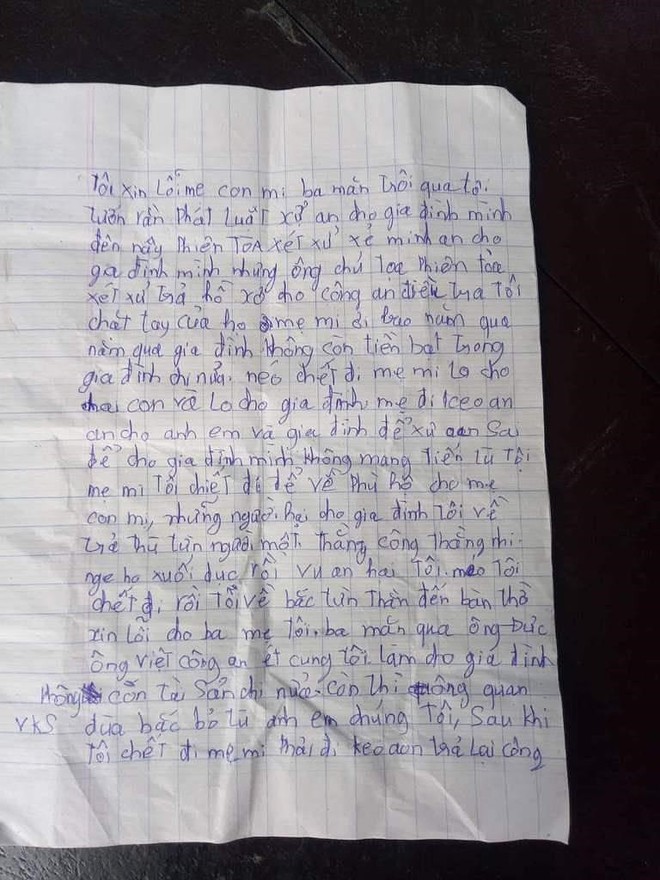 Tôi xin lỗi mẹ con mi ba mắn trôi qua tôi
luôn rần phát luật xử an cho gia đình mình
đến nầy phiên TOA XÉT XỬ xẻ minh an cho
gia đình mình nhưng ông chủ toạ phiên tòa
xét xử trả hồ xơ cho công an điều tra Tôi
chất tay của họ mẹ mi ơi bao năm qua
năm quá gia đình không con tiền bạt trong
gia đình chi nửa. néo chết đi mẹ mi lo cho
hai con và lo cho gia đình. mẹ đi keo an
an cho anh em và gia đình để xử oan sa
để cho gia đình mình không mang tiến tù tội
mẹ mi Tôi chiết đi để về phù hô cho mẹ
con mi, những người hại cho gia đình tôi về
trả thù từn người một. thằng công thằng nhi
nge họ xuối dục rồi vu an hai Tôi. méo Tôi
chết đi rồi Tôi về bắc từn thần đến bàn thờ
xin lỗi cho ba mẹ tôi. ba mắn qua ông Đức
ông việt công an ét cung tôi. làm cho gia đình
không còn tà sản chi nưỏ. còn thì quan
VKS dùa bắc bỏ tù anh em chúng Tôi, Sau khi
Tôi chết đi mẹ mi thải đi keo đơn trả lại công